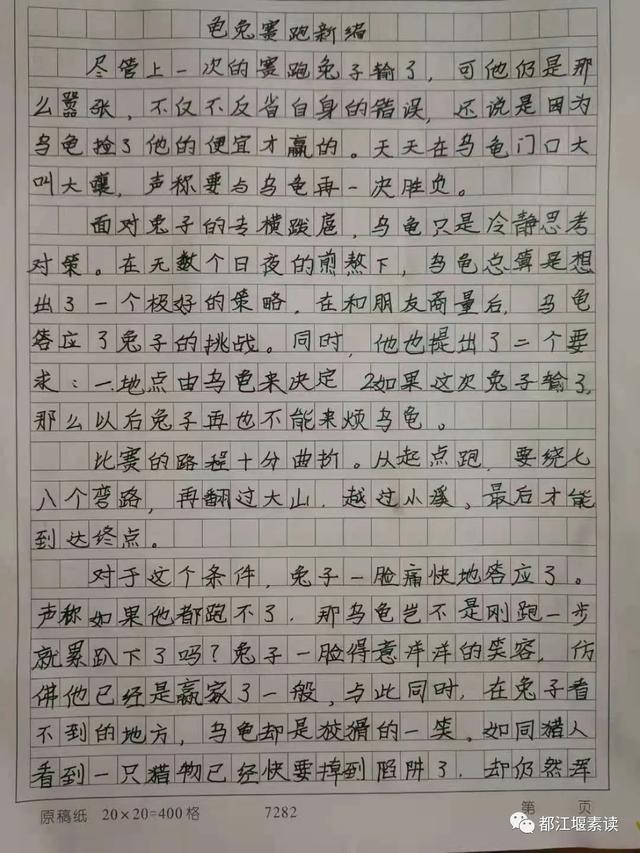 龟兔赛跑新编
尽管上一次的赛跑兔子输了，可他仍是那
么嚣张，不仅不反省自身的错误，还说是因为
乌龟捡了他的便宜才赢的。天天在乌龟门口大
叫大嚷，声称要与乌龟再一决胜负。
面对兔子的专横跋扈，乌龟只是冷静思考
对策。在无数个日夜的煎熬下，乌龟总算是想
出了一个极好的策略，在和朋友商量后，乌龟
答应了兔子的挑战。同时，他也提出了二个要
求：一.地点由乌龟来决定 2如果这次兔子输了，
那么以后兔子再也不能来烦乌龟。
比赛的路程十分曲折。从起点跑，要绕七
八个弯路，再翻过大山，越过小溪，最后才能
到达终点。
对于这个条件，兔子一脸痛快地答应了。
声称如果他都跑不了，那乌龟岂不是刚跑一步
就累趴下了吗？兔子一脸得意洋洋的笑容，仿
佛他已经是赢家了一般，与此同时，在兔子看
不到的地方，乌龟却是狡猾的一笑，如同猎人
看到一只猎物已经快要掉到陷阱了，却仍然浑
原稿纸 20×20=400格 7282 第 页
都江堰素读